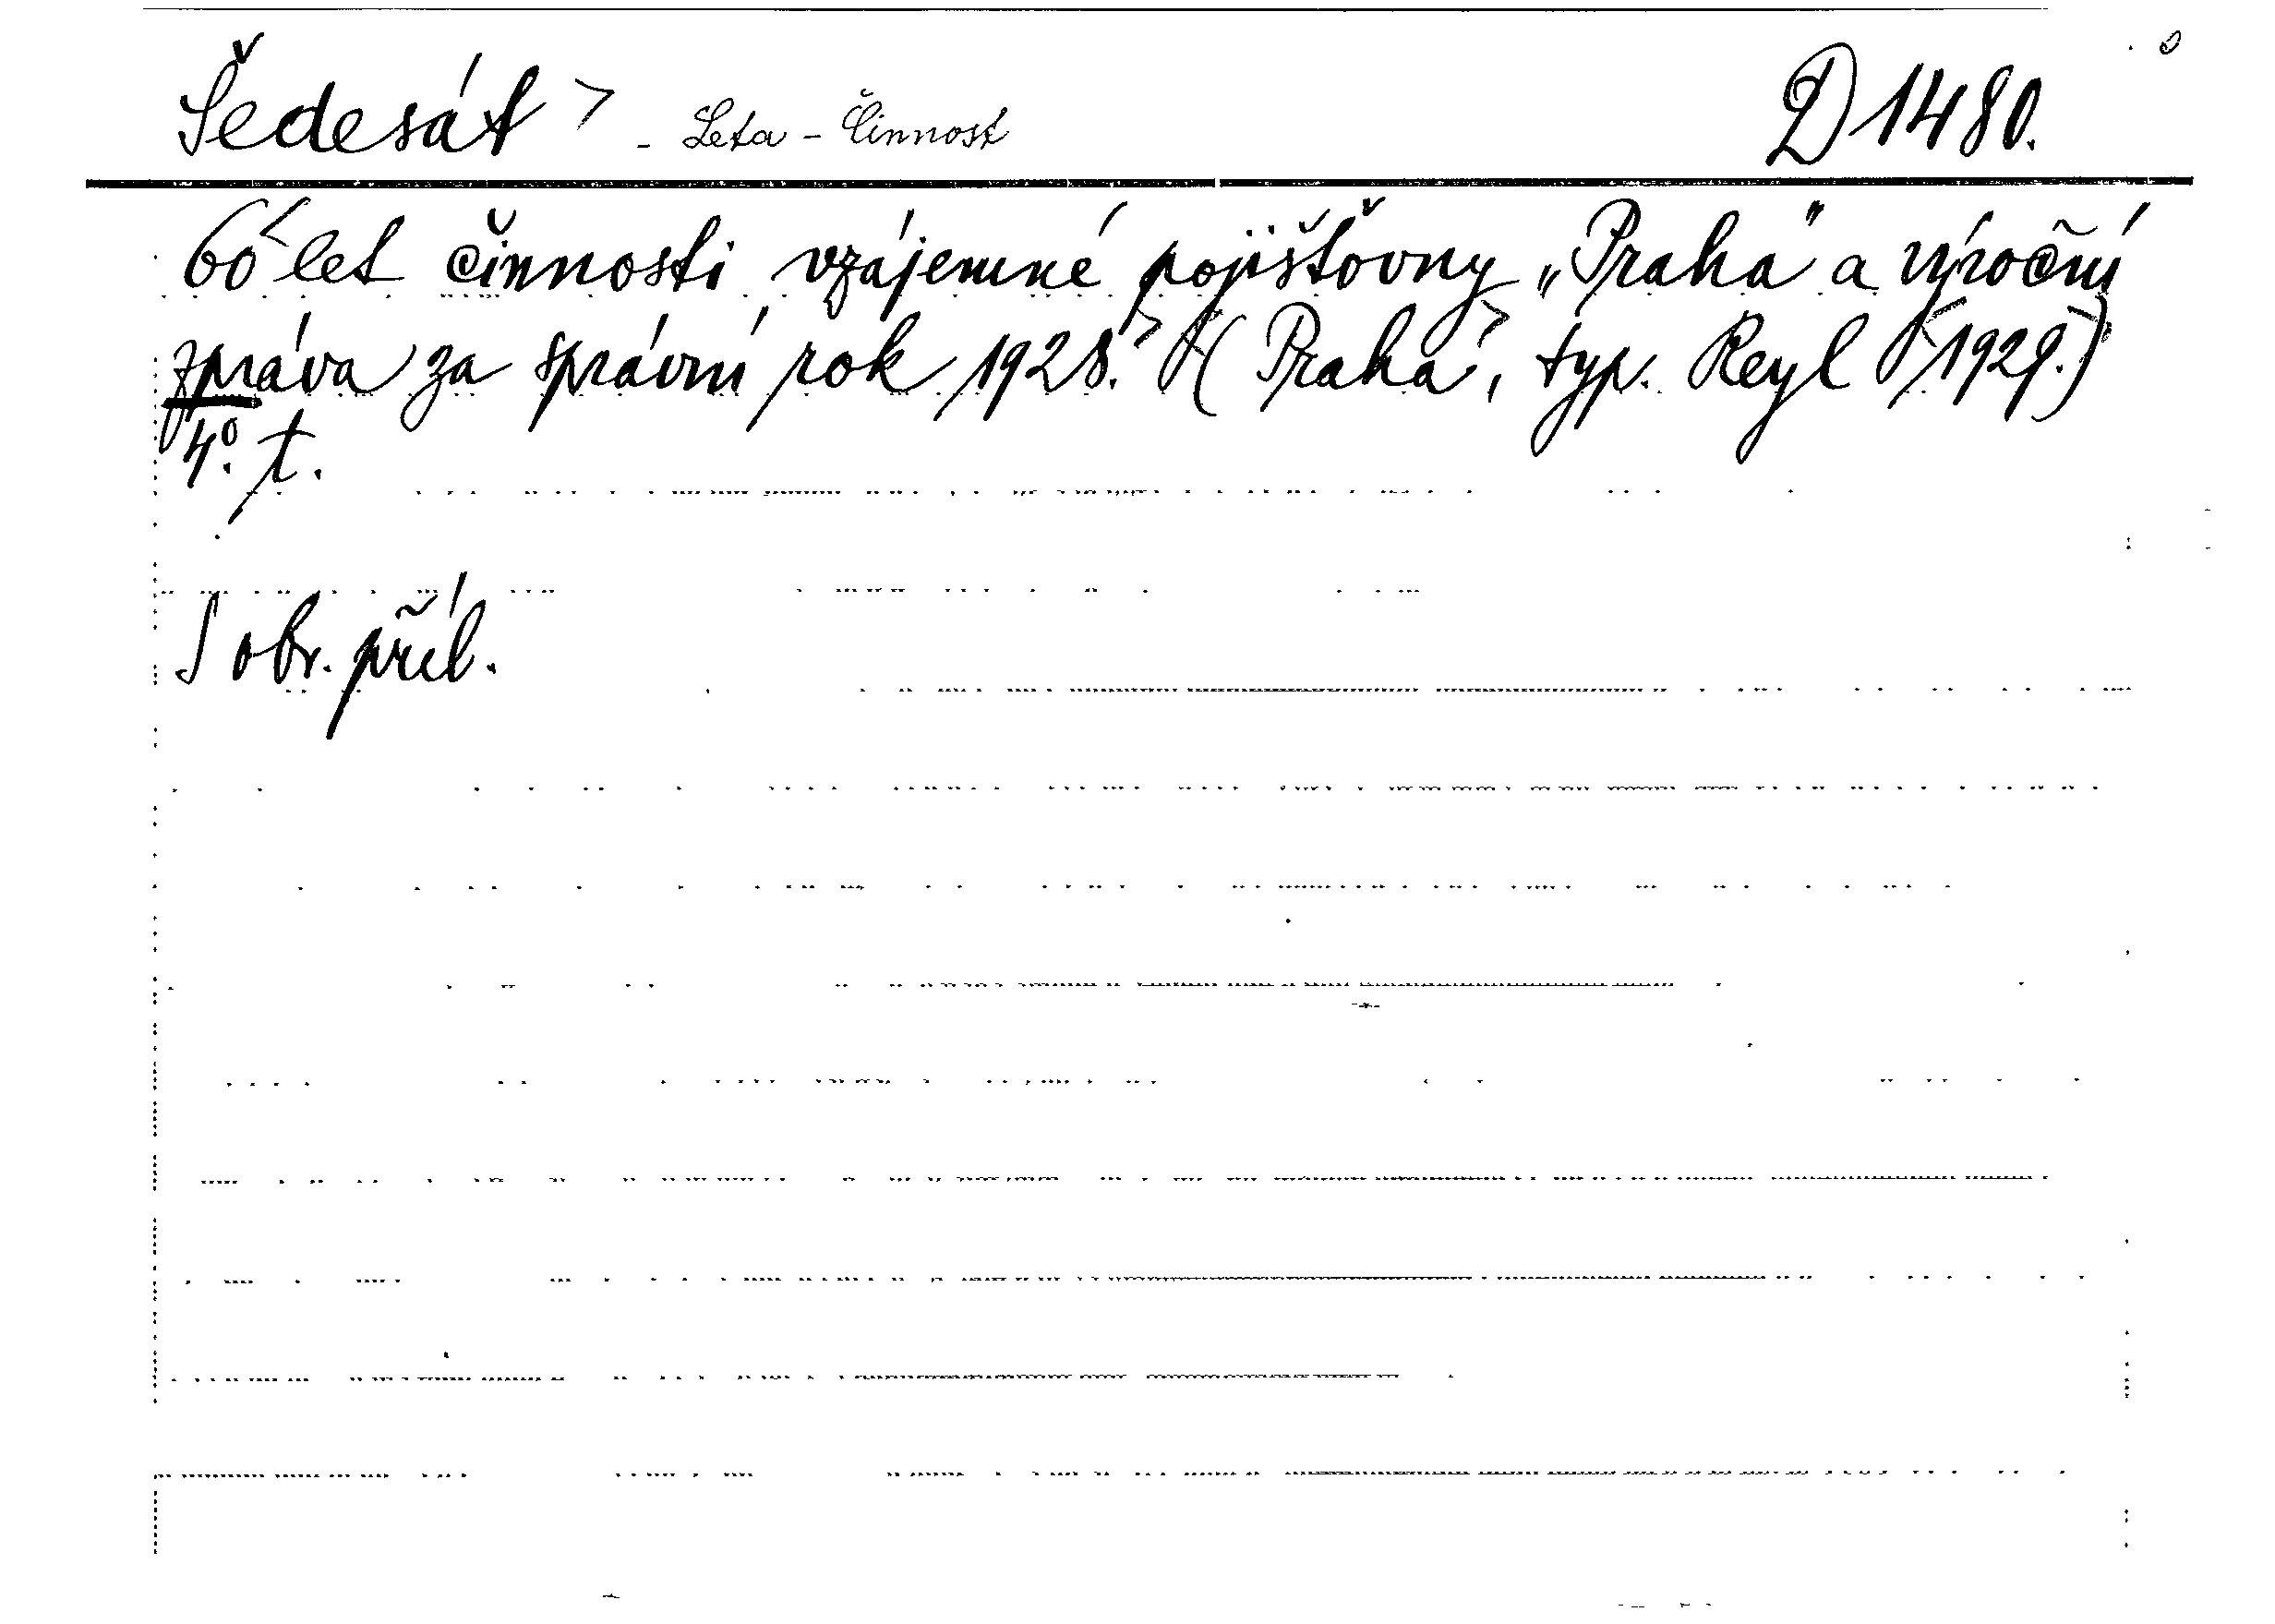 Šedesát > - Leta - Činnost D 1480.
60 let činnosti vzájemné pojišťovny „Praha" a výroční
zpráva za správní rok 1928. (Praha, typ. Reyl 1929.)
4º. t.
S obr. příl.